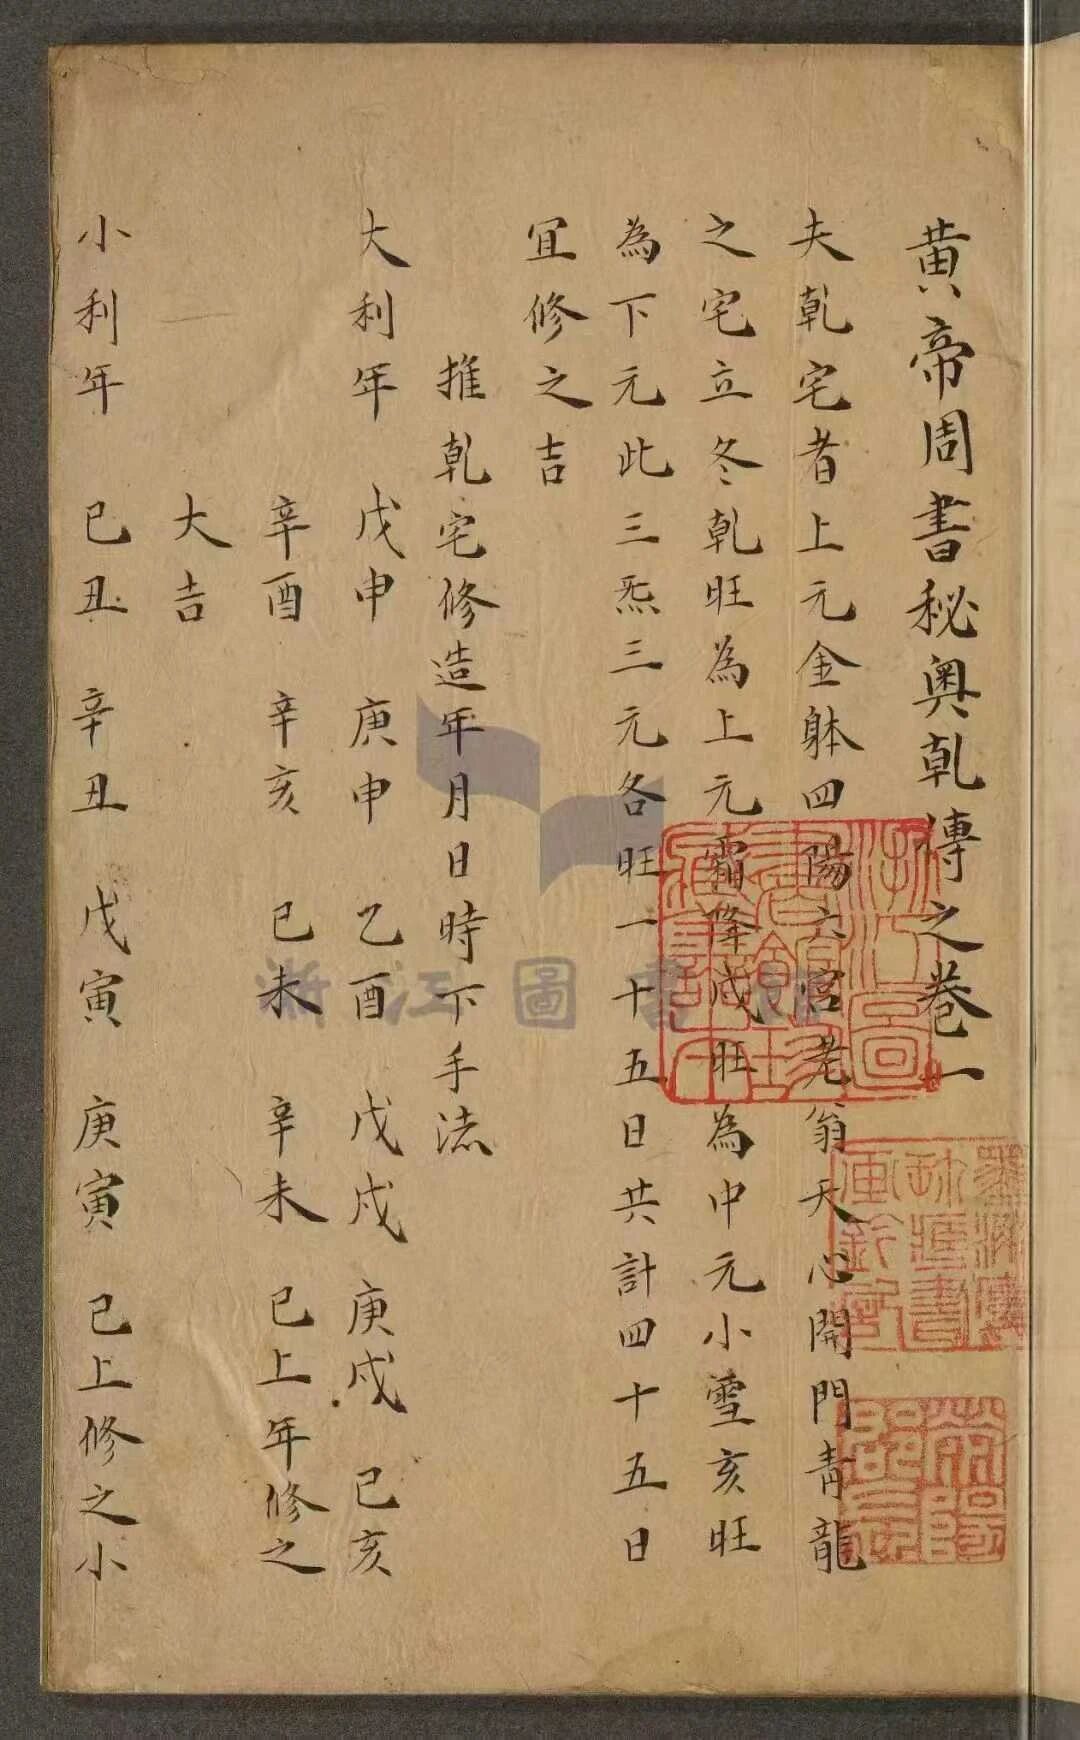 黄帝周書秘奥乹傳之巻一
夫乹宅者上元金躰四陽六宫老翁天心開門青龍
之宅立冬乹旺為上元霜降戌旺為中元小雪亥旺
為下元此三炁三元各旺一十五日共計四十五日
宜修之吉
推乹宅修造年月日時下手法
大利年 戊申 庚申 乙酉 戊戌 庚戌 己亥
辛酉 辛亥 己未 辛未 已上年修之
大吉
小利年 己丑 辛丑 戊寅 庚寅 已上修之小
浙江圖書館
浙江圖書館珍藏善本